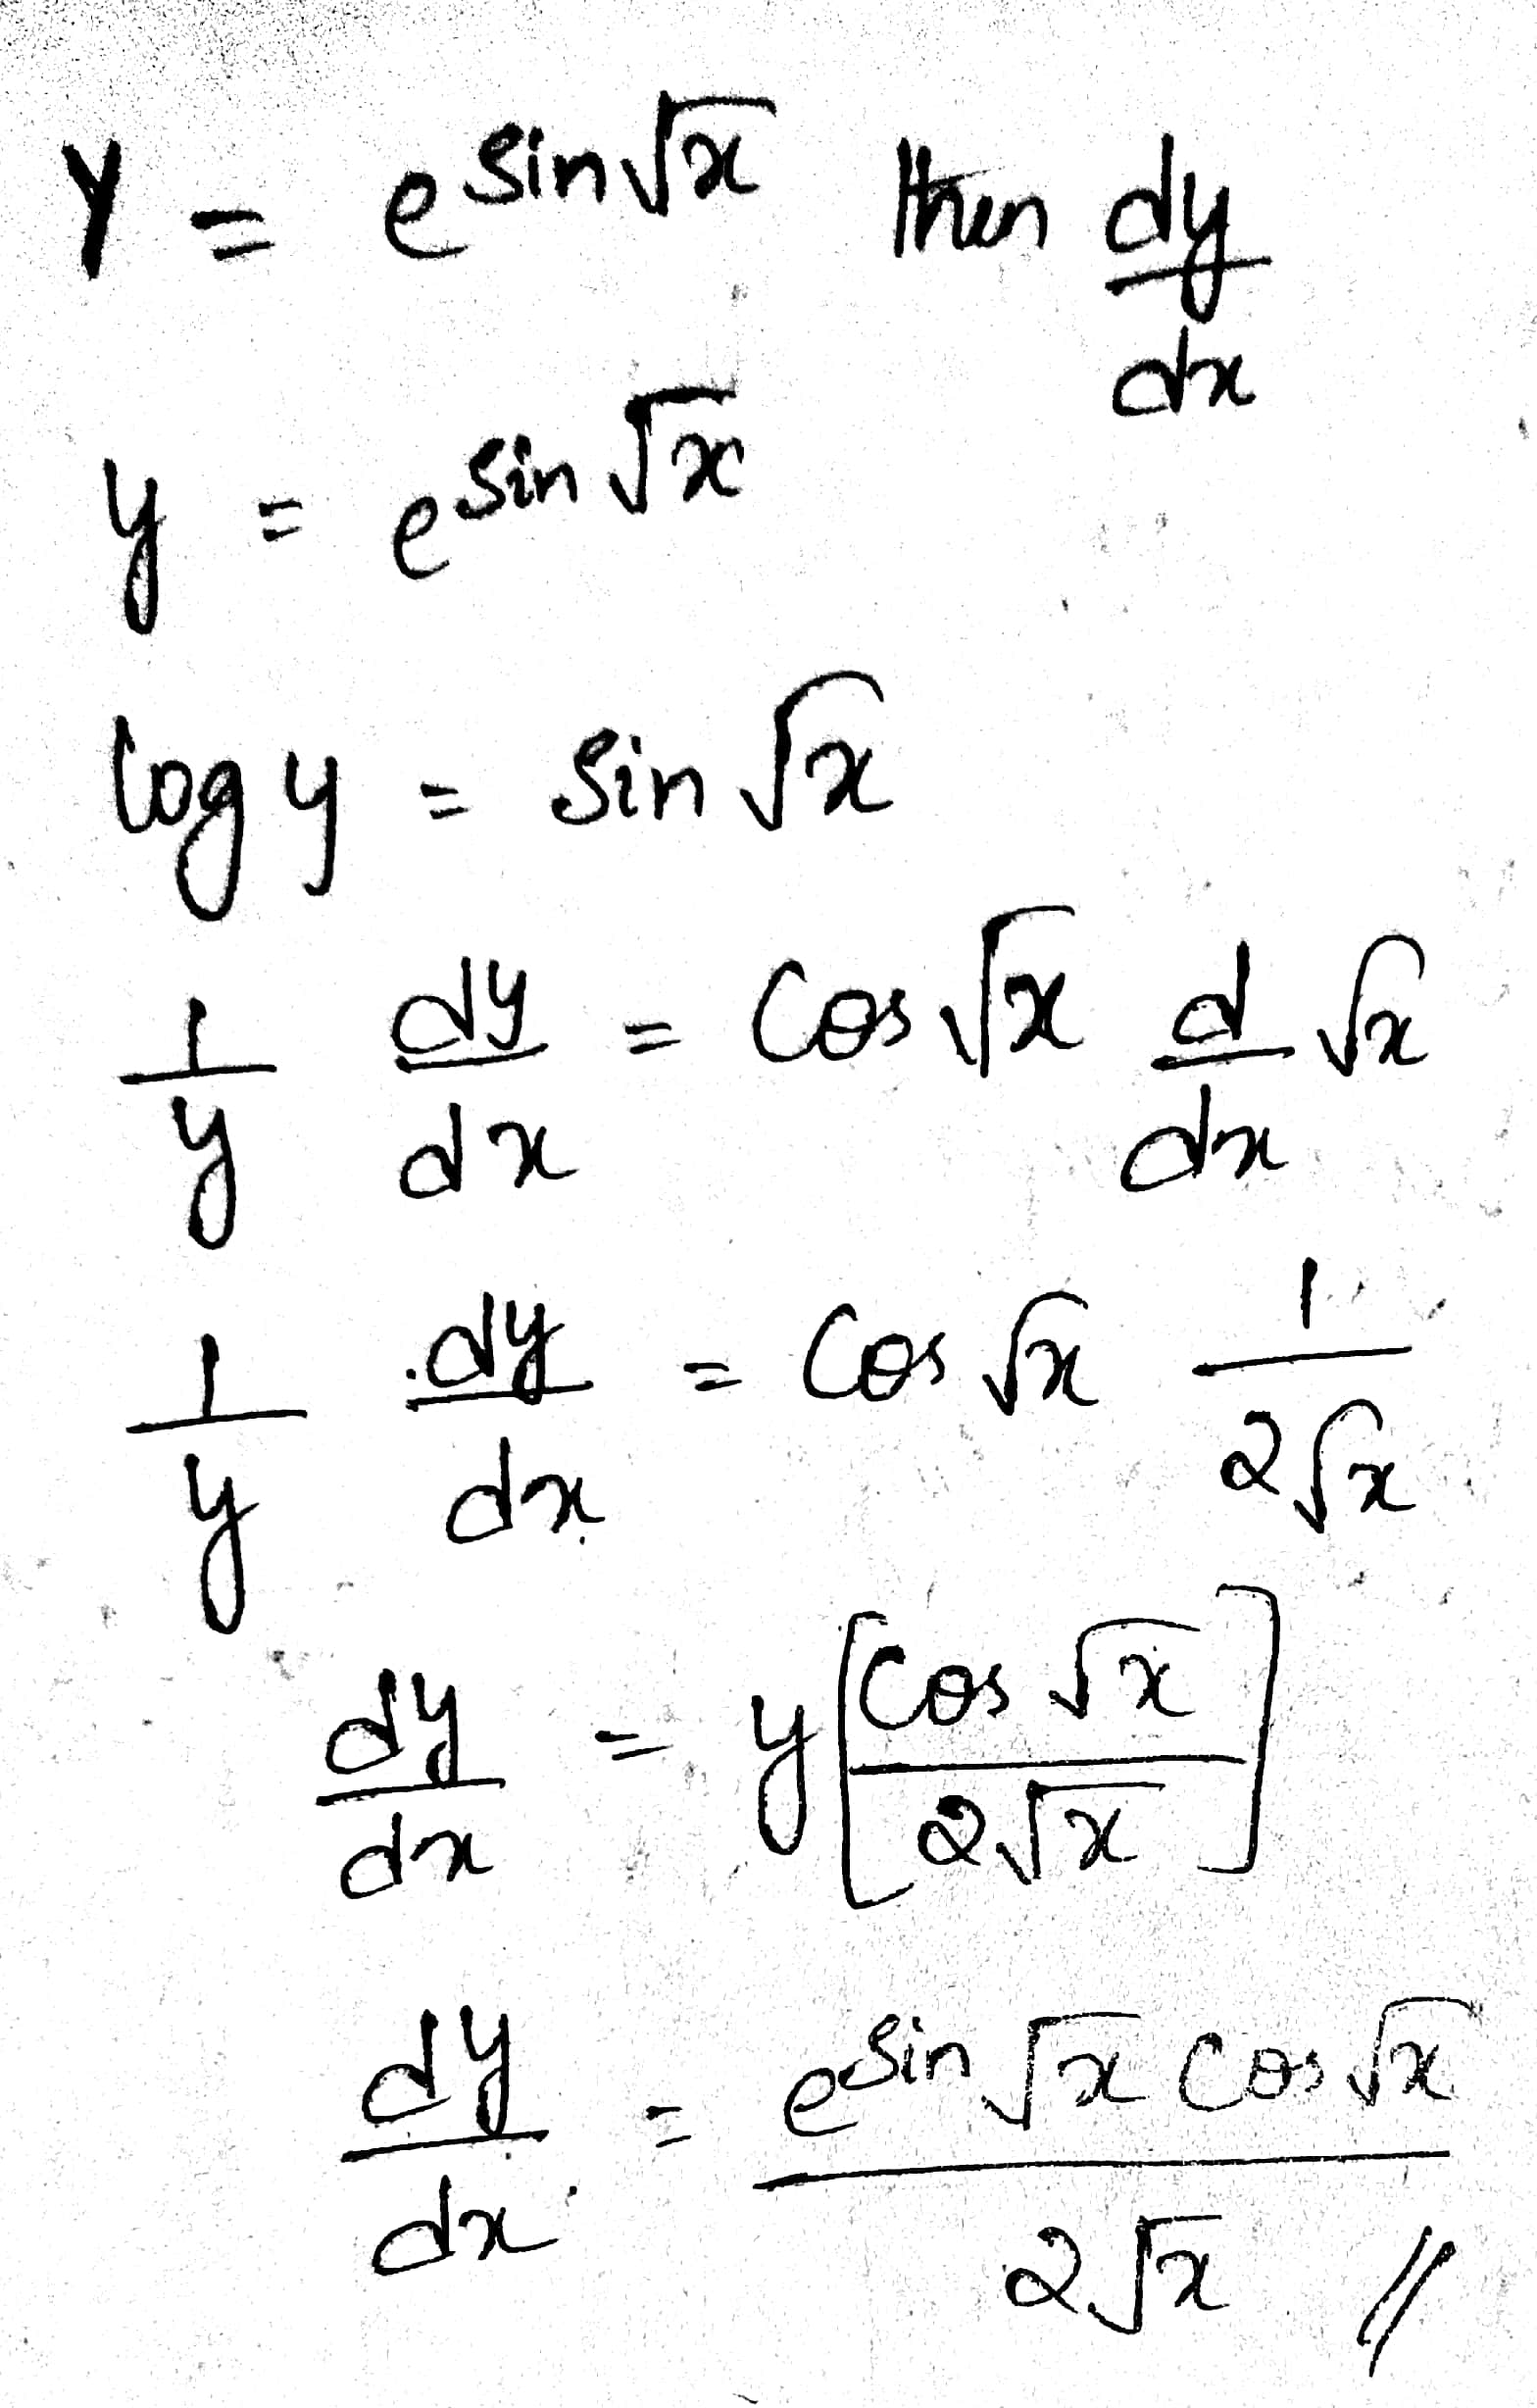 Y = e^{sin √x} then dy/dx
y = e^{sin √x}
log y = sin √x
1/y dy/dx = cos √x d/dx √x
1/y dy/dx = cos √x 1/2√x
dy/dx = y[cos √x/2√x]
dy/dx = e^{sin √x} cos √x/2√x //